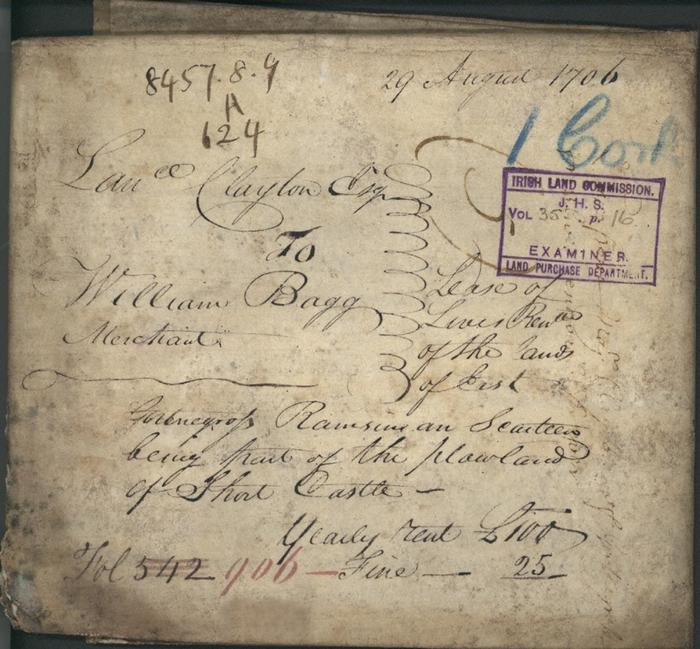 8457.8.9
A
624
29 August 1706
1 Cork
Lau ce Clayton Esq
To
William Bagg
Merchant
IRISH LAND COMMISSION.
J. H. S.
VOL 355 p. 16
EXAMINER.
LAND PURCHASE DEPARTMENT.
Lease of
Lives
of the lands
of East
being part of the plowland
of Short Castle —
Yearly rent £100
Vol 542 906 — Fine — 25